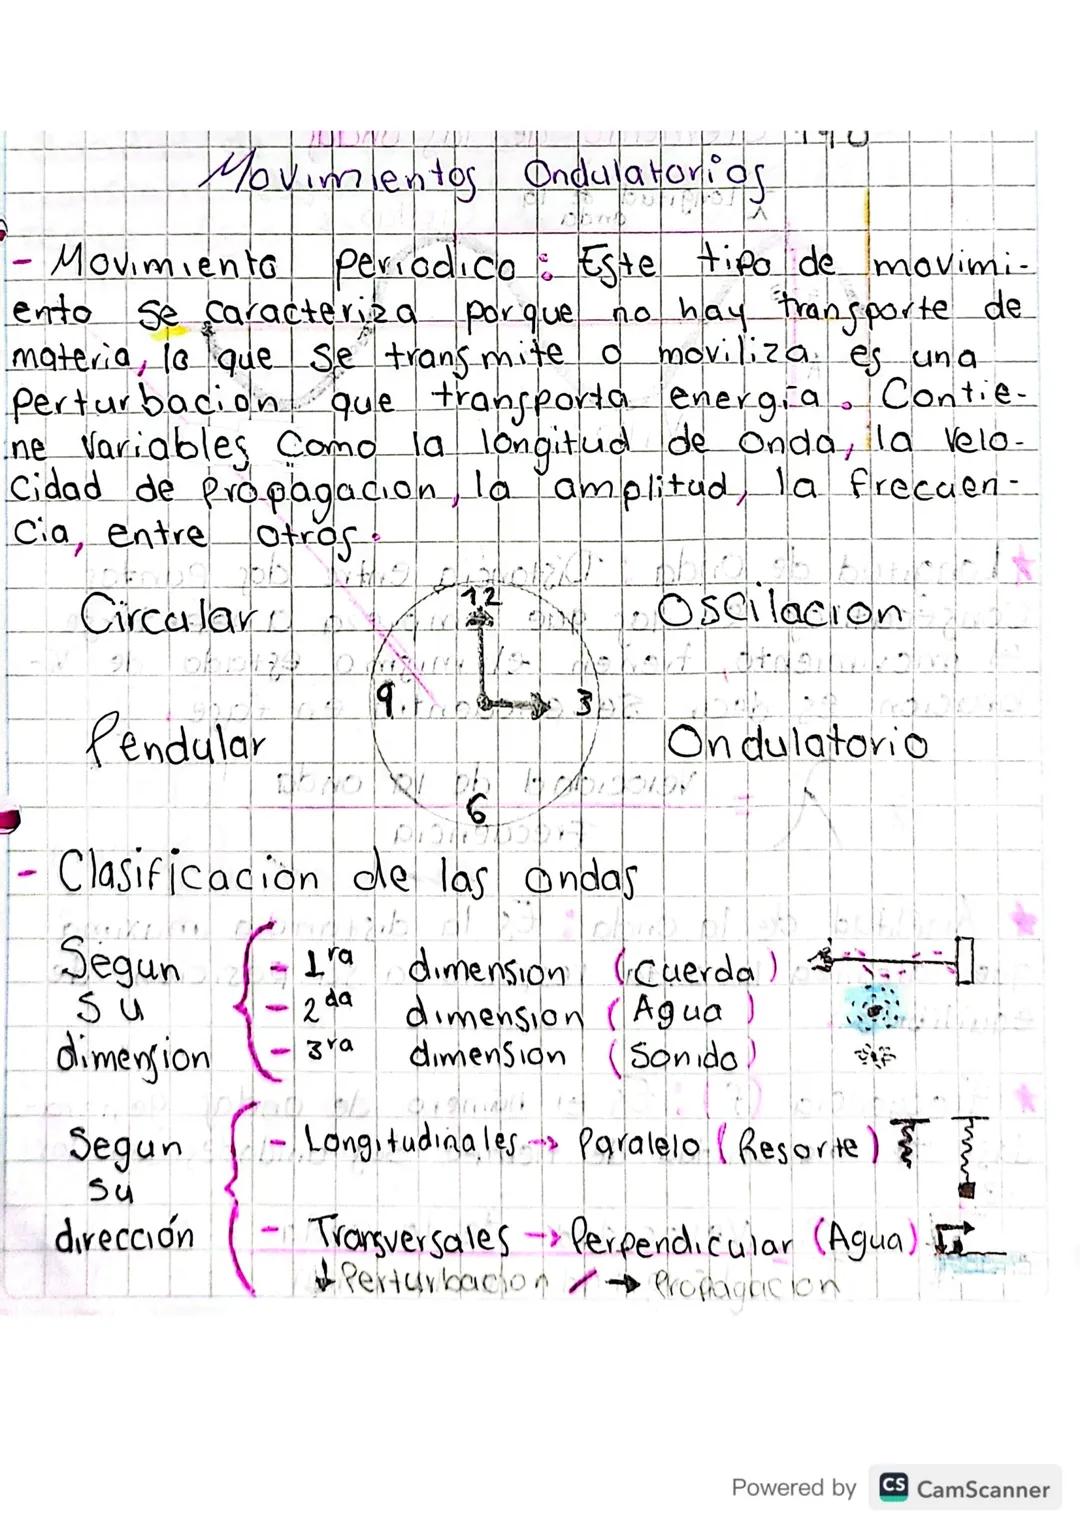 Movimientos Ondulatorios
- Movimiento periodico : Este tipo de movimi-
ento se caracteriza porque no hay transporte de
materia, lo que se transmite o moviliza es una
perturbacion que transporta energía. Contie-
ne variables como la longitud de onda, la velo-
cidad de propagacion, la amplitud, la frecuen-
cia, entre otros.
Circular
Oscilacion
12
9
3
6
Pendular
Ondulatorio
- Clasificacion de las ondas
Segun su dimension
- 1ra dimension (Cuerda)
- 2da dimension (Agua)
- 3ra dimension (Sonido)
Segun su dirección
- Longitudinales → Paralelo (Resorte)
- Transversales → Perpendicular (Agua)
↓ Perturbacion / → Propagacion
Powered by CS CamScanner